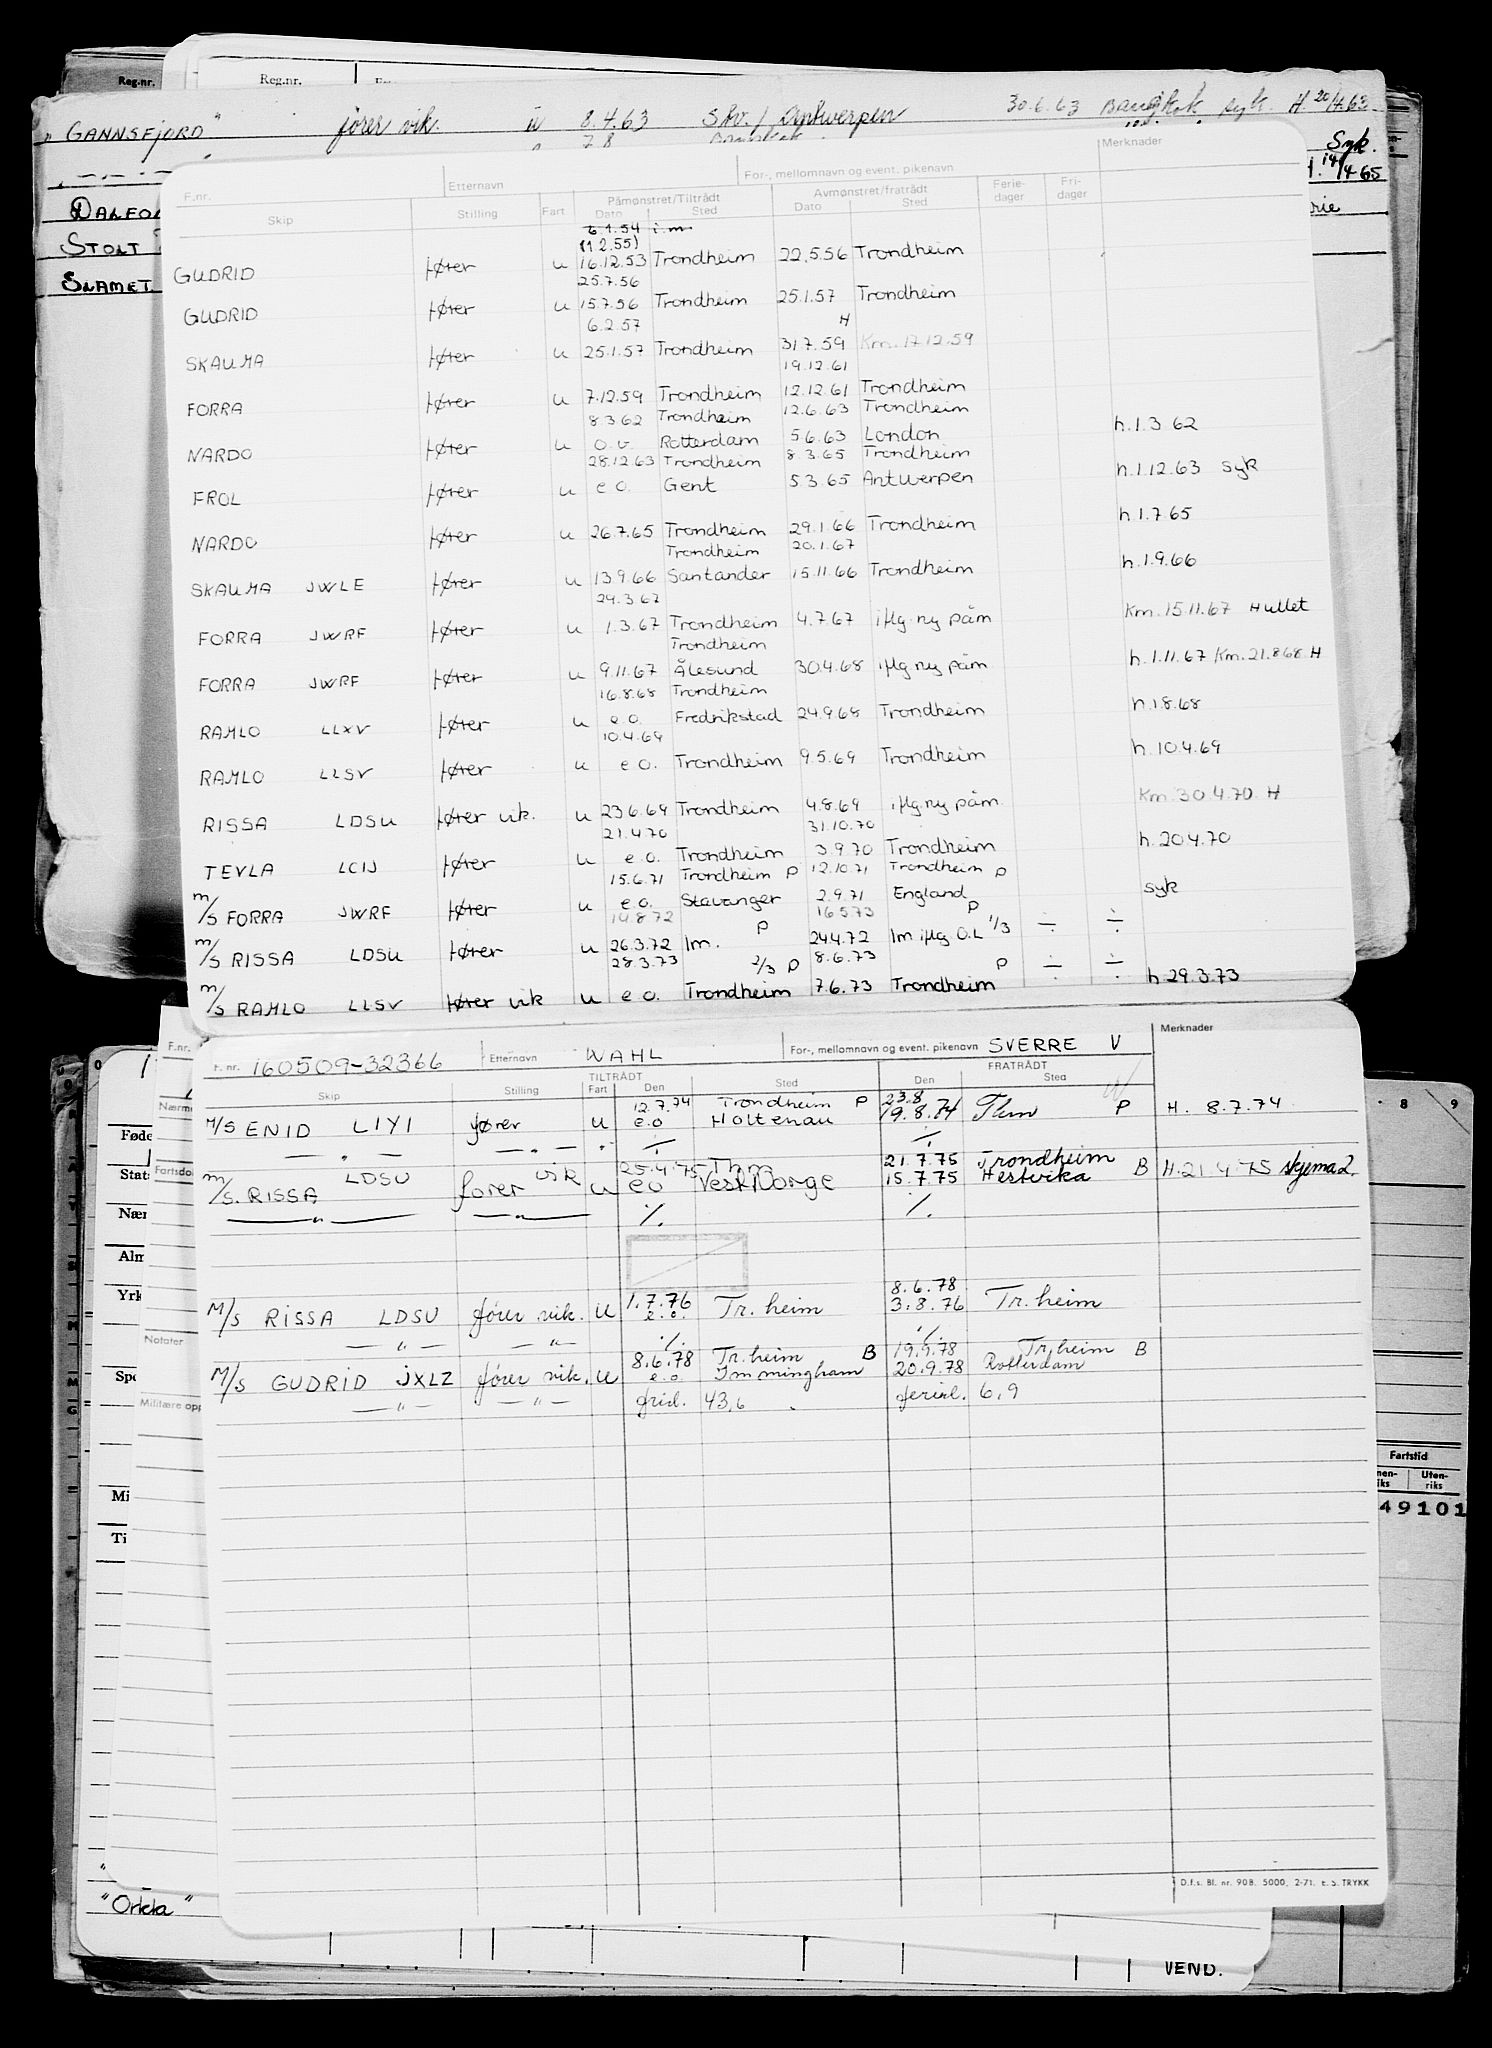 Reg.nr.
Reg.nr.
"GANNSFJORD" fører vik. u 8.4.63 Skv. / Antwerpen 30.6.63 Bangkok syk. H. 20/4.63
7.8
Syk.
14/4 65
DALFO
STOLT
SLAMET.
Merknader
F.nr. Etternavn For-, mellomnavn og event. pikenavn
Skip Stilling Fart Påmønstret/Tiltrådt Dato Sted Avmønstret/fratrådt Dato Sted Ferie-dager Fri-dager
6.1.54 i.m
(1 2.55)
GUDRID fører u 16.12.53 Trondheim 22.5.56 Trondheim
25.7.56
GUDRID fører u 15.7.56 Trondheim 25.1.57 Trondheim
6.2.57 H
SKAUMA fører u 25.1.57 Trondheim 31.7.59 Km. 17.12.59
19.12.61
FORRA fører u 7.12.59 Trondheim 12.12.61 Trondheim
8.3 62 Trondheim 12.6.63 Trondheim
NARDO fører u o.v. Rotterdam 5.6.63 London h.1.3 62
28.12.63 Trondheim 8.3.65 Trondheim
FROL fører u e o. Gent 5.3.65 Antwerpen h.1.12.63 syk
NARDO fører u 26.7.65 Trondheim 29.1.66 Trondheim h 1.7.65
Trondheim 20.1.67
SKAUMA JWLE fører u 13.9.66 Santander 15.11.66 Trondheim h.1.9.66
29.3.67
FORRA JWRF fører u 1.3.67 Trondheim 4.7.67 iflg. ny påm Km. 15.11.67 Hullet
Trondheim
FORRA JWRF fører u 9.11.67 Ålesund 30.4.68 iflg ny påm h.1.11.67 Km. 21.8.68 H
16.8.68 Trondheim
RAMLO LLXV fører u e.o. Fredrikstad 24.9.68 Trondheim h 1.8.68
10.4.69
RAMLO LLSV fører u e o. Trondheim 9.5.69 Trondheim h.10.4.69
RISSA LDSU fører vik. u 23.6.69 Trondheim 4.8.69 iflg. ny påm. Km. 30.4.70. H
21.4.70 31.10.70
TEVLA LCIJ fører u e.o. Trondheim 3.9.70 Trondheim h. 20.4.70
15.6.71 Trondheim P 12.10.71 Trondheim P
m/s FORRA JWRF fører u e.o. Stavanger 2.9.71 England syk
14.8.72 P 16.5.73 P
m/s RISSA LDSU fører u 26.3.72 Im. 24.4.72 Im iflg O.L 1/3 ÷ ÷
28.3.73 2/3 P 8.6.73 P ÷ ÷
m/s RAMLO LLSV fører vik u e o. Trondheim 7.6.73 Trondheim h 29.3.73
Merknader
F. nr. 160509-32366 Etternavn WAHL For-, mellomnavn og event. pikenavn SVERRE V
Skip Stilling Fart TILTRÅDT Den Sted FRATRÅDT Den Sted
12.7.74 Trondheim P 23.8
M/S ENID LIYI fører u e.o Holtenau 19.8.74 Thm P H. 8.7.74
— " — — " — " ⁒ ⁒
25.4.75 Thm 21.7.75 Trondheim
m/s. RISSA LDSU fører vik u eo Vest Norge 15.7.75 Hestvika B H.21.4.75 skjema 2
— " — — " — ⁒ ⁒
8.6.78
M/S RISSA LDSU fører vik. u 1.7.76 e.o. Tr. heim 3.8.76 Tr. heim
— " — — " — ⁒ ⁒
8.6.78 Tr. heim B 19.9.78 Tr.heim B
M/S GUDRID JXLZ fører vik. u e.o. Immingham 20.9.78 Rotterdam
— " — — " — frid. 43,6 ferid. 6,9
F.nr.
Nærm
Føde
Fartsdo
Stats
Nær
Alm
Yrk
Notater
Spe
Militære opp
Mi
Ti
8 9
Fartstid
Uten-riks
49101
"Orkla"
D.f.s. Bl. nr. 908. 5000. 2-71. E. S. TRYKK
VEND.